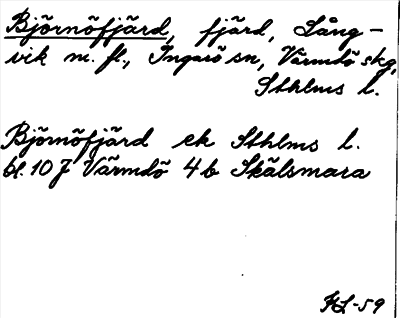 Björnöfjärd, fjärd, Lång-
vik m. fl., Ingarö sn, Värmdö skg,
Sthlms l.
Björnöfjärd ek Sthlms l.
bl. 10 J Värmdö 4b Skälsmara
HL-59